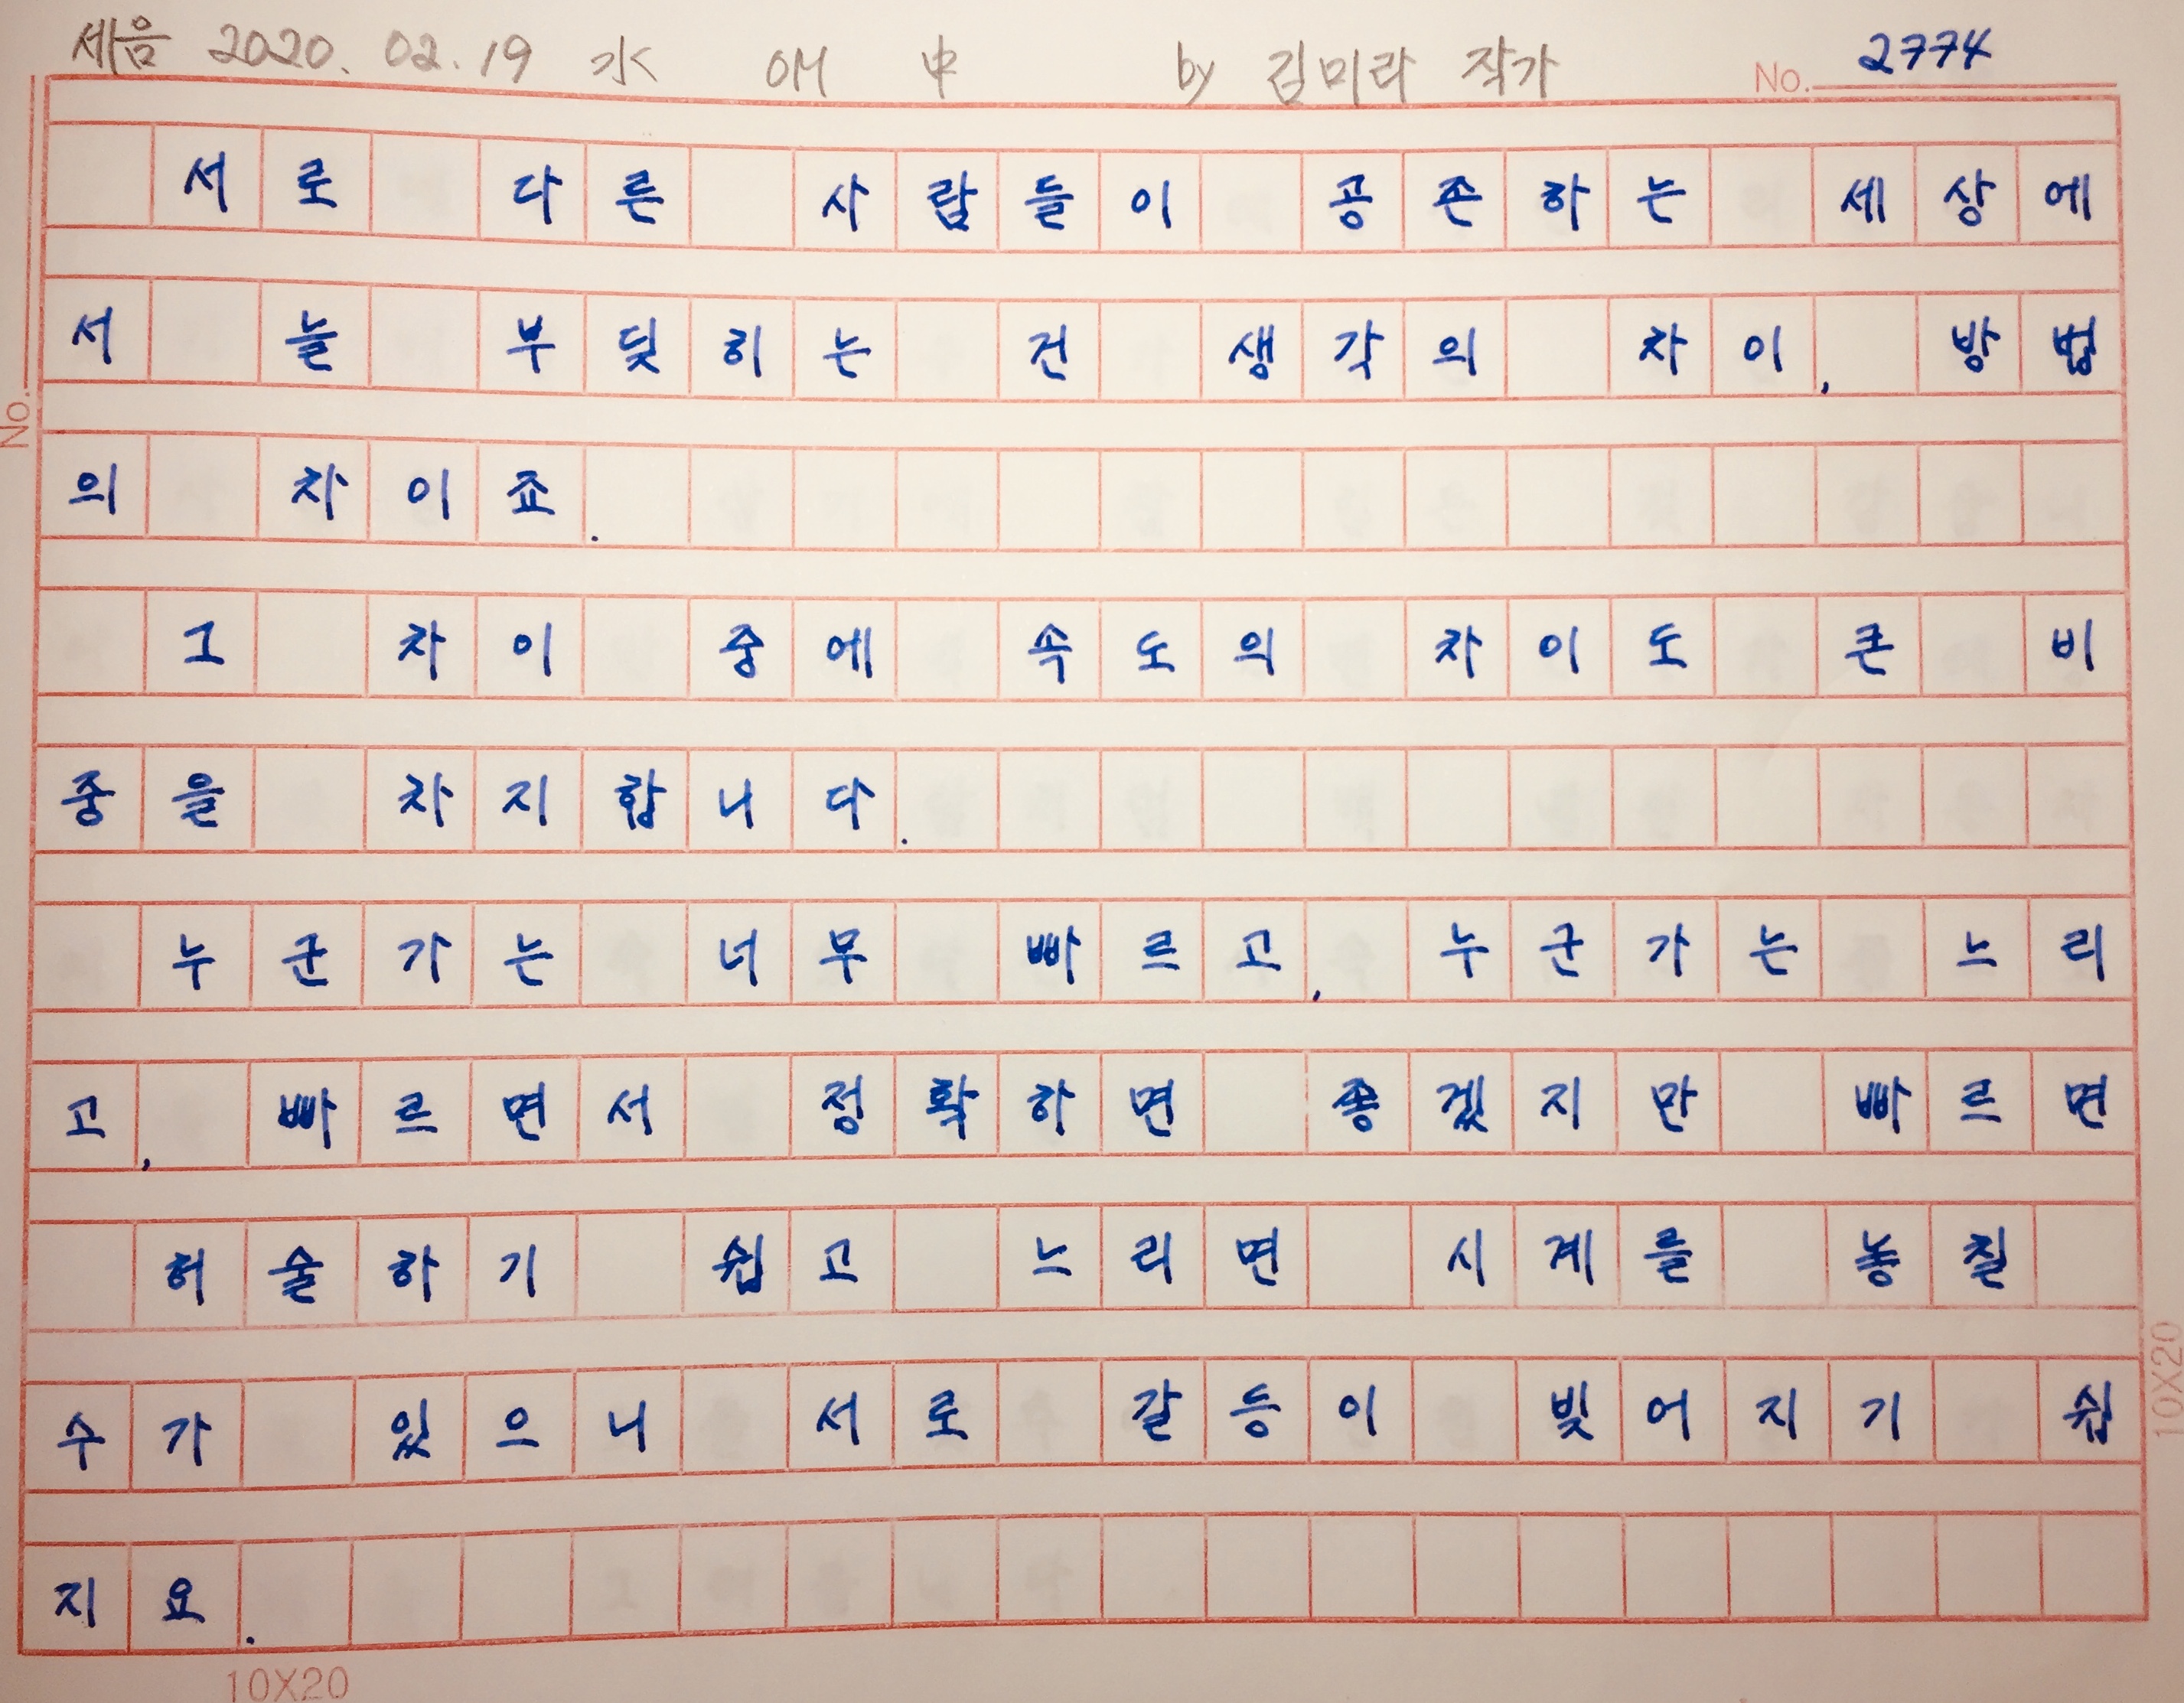 세음 2020. 02. 19 水 OM 中 by 김미라 작가 No. 2774
서로 다른 사람들이 공존하는 세상에
서 늘 부딪히는 건 생각의 차이, 방법
의 차이죠.
그 차이 중에 속도의 차이도 큰 비
중을 차지합니다.
누군가는 너무 빠르고, 누군가는 느리
고, 빠르면서 정확하면 좋겠지만 빠르면
허술하기 쉽고 느리면 시계를 놓칠
수가 있으니 서로 갈등이 빚어지기 쉽
지요.
No.
10X20
10X20